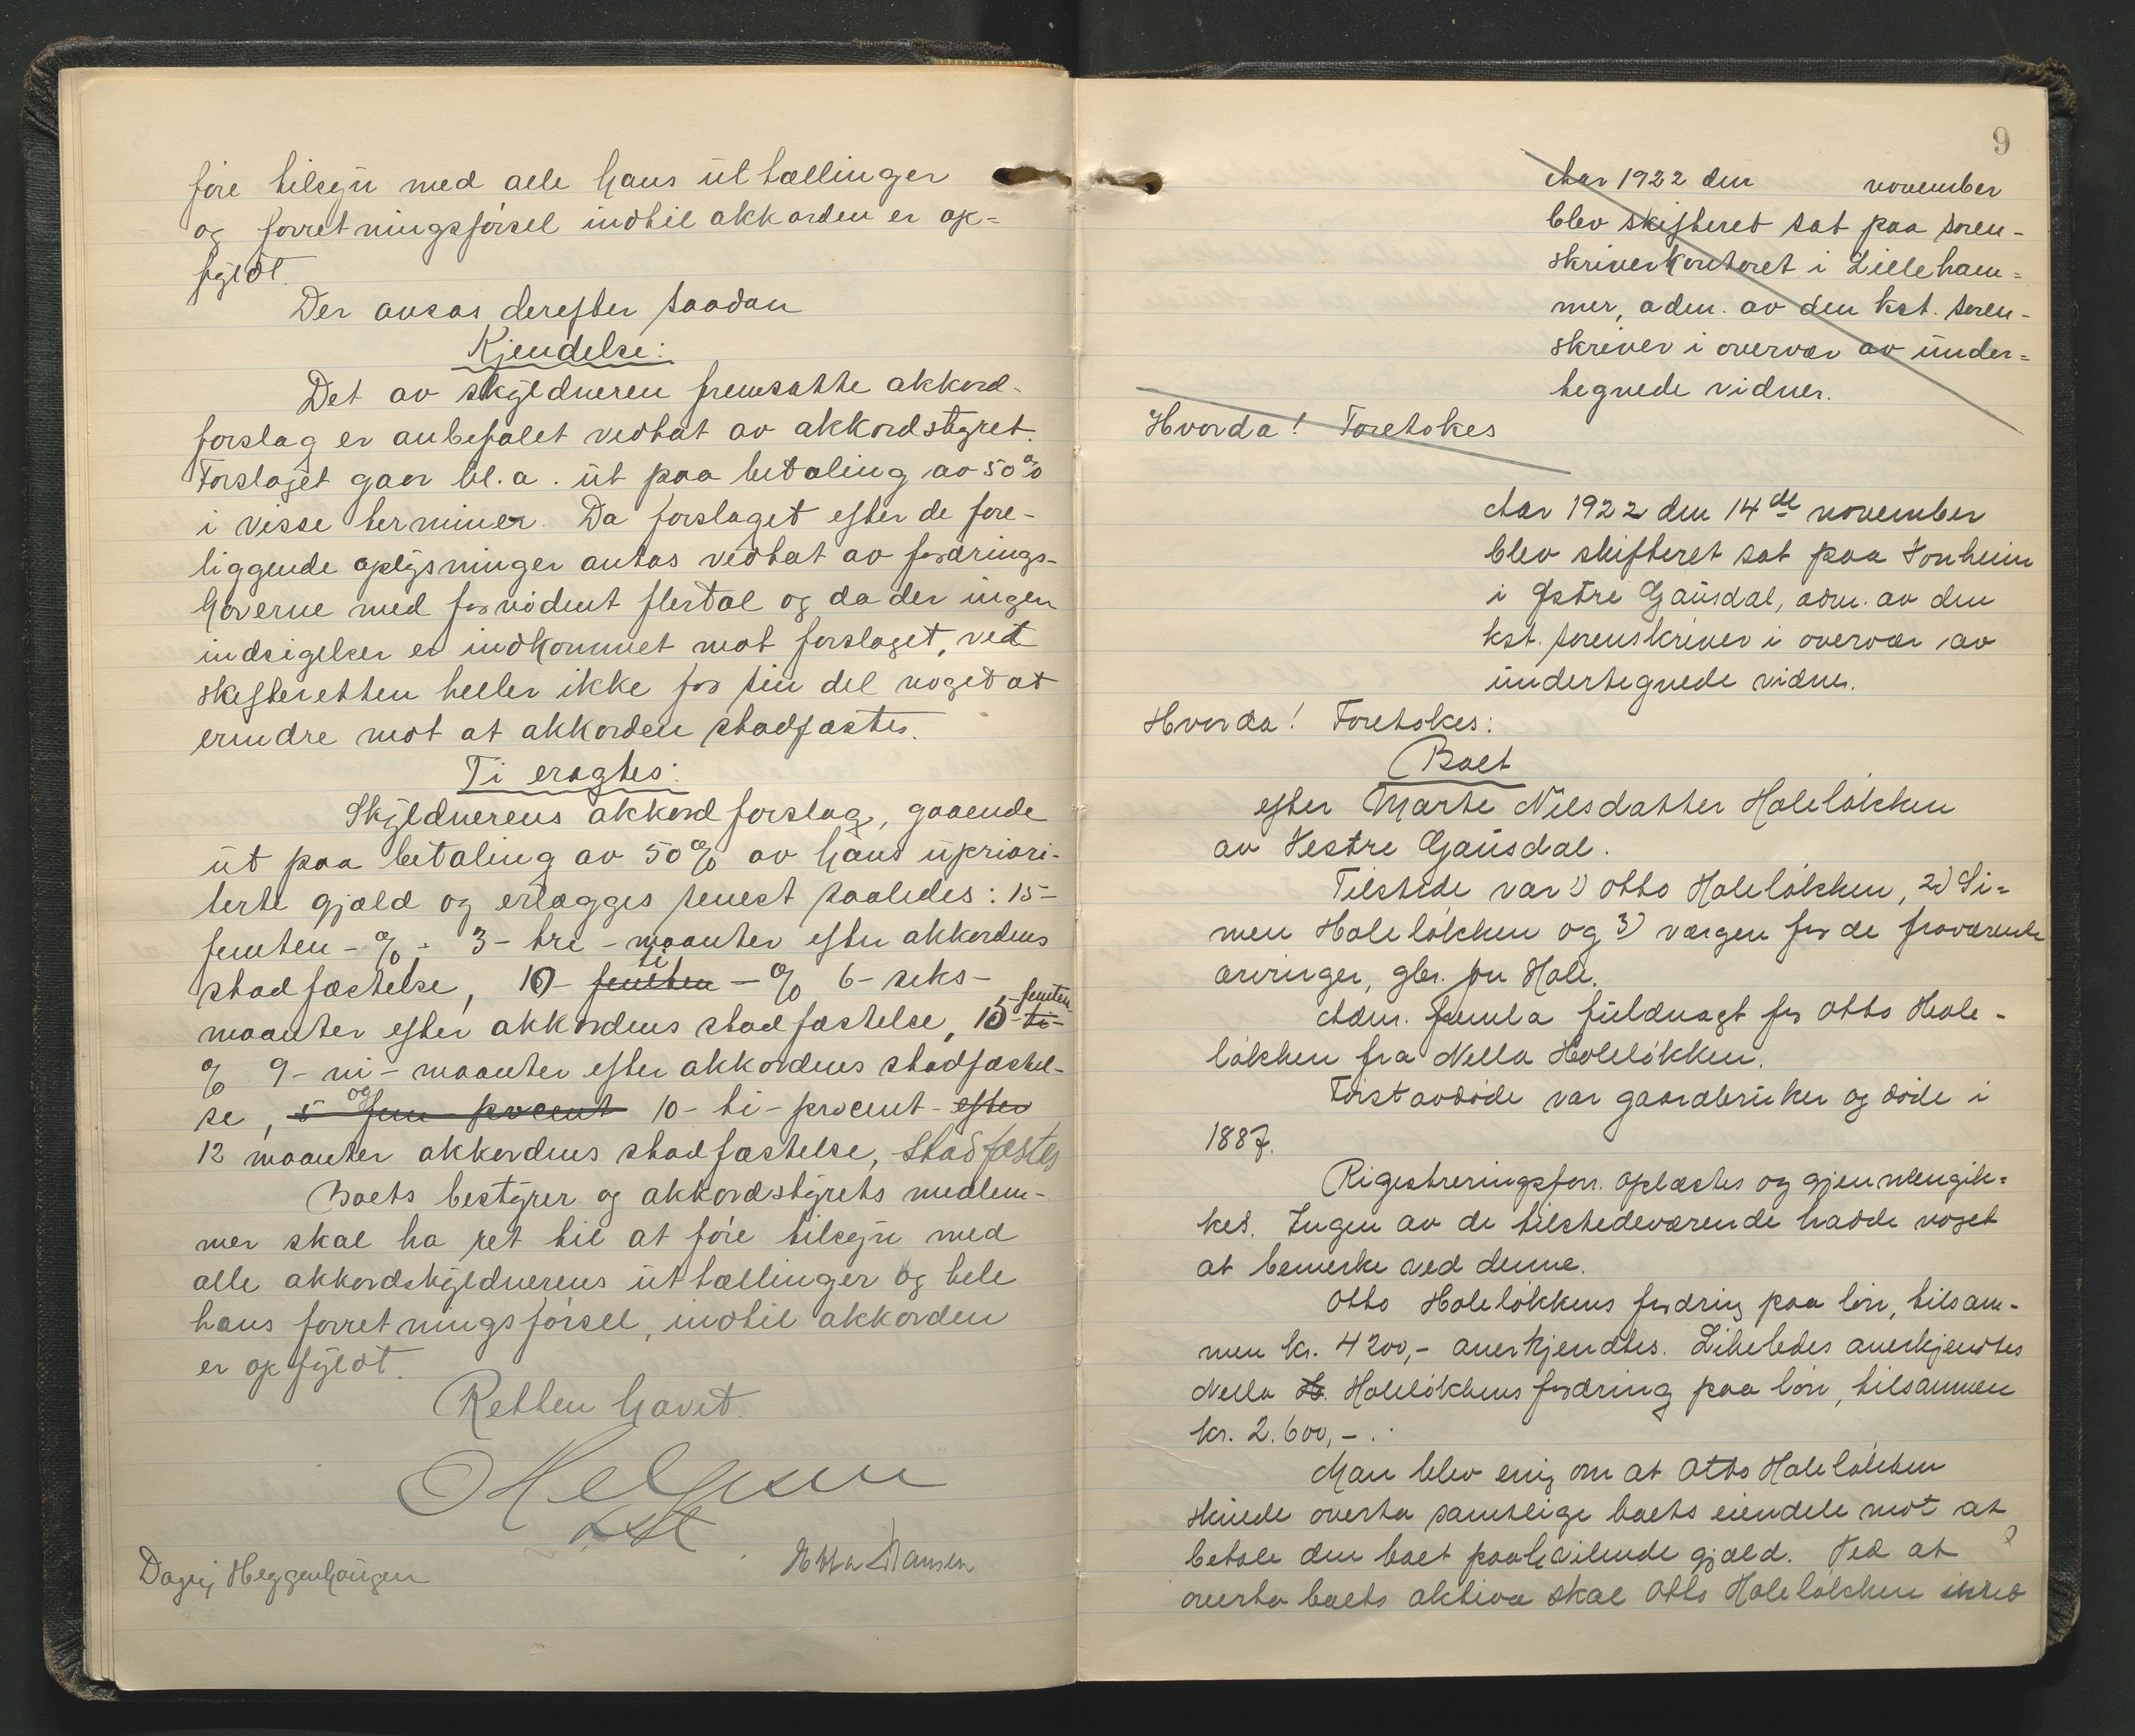 føre tilsyn med alle hans uttællinger
og forretningsførsel indtil akkorden er op-
fyldt.
Der avsas derefter saadan
Kjendelse:
Det av skyldneren fremsatte akkord-
forslag er anbefalet vedtat av akkordstyret.
Forslaget gaar bl.a. ut paa betaling av 50%
i visse terminer. Da forslaget efter de fore-
liggende oplysninger antas vedtat av fordrings-
haverne med fornødent flertal og da der ingen
indsigelser er indkommet mot forslaget, vet
skifteretten heller ikke for sin del noget at
erindre mot at akkorden stadfæstes.
Ti eragtes:
Skyldnerens akkordforslag, gaaende
ut paa betaling av 50% av hans upriori-
terte gjæld og erlægges senest saaledes: 15-
femten-%. 3-tre-maanter efter akkordens
stadfæstelse, 10- femten ti -% 6-seks-
maanter efter akkordens stadfæstelse, 15-ti- femten
% 9-ni-maanter efter akkordens stadfæstel-
se, 5 fem procent og 10-ti-procent-efter
12 maanter akkordens stadfæstelse, stadfæstes
Boets bestyrer og akkordstyrets medlem-
mer skal ha ret til at føre tilsyn med
alle akkordskyldnerens uttællinger og hele
hans forretningsførsel, indtil akkorden
er opfyldt.
Retten hævet.
kst
Dagny Heggenhaugen
Hansen
9
Aar 1922 den november
blev skifteret sat paa soren-
skriverkontoret i Lilleham-
mer, adm. av den kst. soren-
skriver i overvær av under-
tegnede vidner.
Hvorda! Foretokes
Aar 1922 den 14de november
blev skifteret sat paa Jonheim
i Østre Gausdal, adm. av den
kst. sorenskriver i overvær av
undertegnede vidner.
Hvorda! Foretokes:
Boet
efter Marte Nilsdatter Holeløkken
av Vestre Gausdal.
Tilstede var 1) Otto Holeløkken, 2) Si-
men Holeløkken og 3) værgen for de fraværende
arvinger, gbr. Jon Hole.
Adm. fremla fuldmagt for Otto Hole-
løkken fra Nella Holeløkken.
Førstavdøde var gaardbruker og døde i
1887.
Rigestreringsforr. oplæstes og gjennemgik-
kes. Ingen av de tilstedeværende hadde noget
at bemerke ved denne.
Otto Holeløkkens fordring paa løn, tilsam-
men kr. 4200,- anerkjendtes. Likeledes anerkjendtes
Nella H. Holeløkkens fordring paa løn, tilsammen
kr. 2.600,-.
Man blev enig om at Otto Holeløkken
skulde overta samtlige boets eiendele mot at
betale den boet paahvilende gjæld. Ved at
overta boets aktiva skal Otto Holeløkken intet